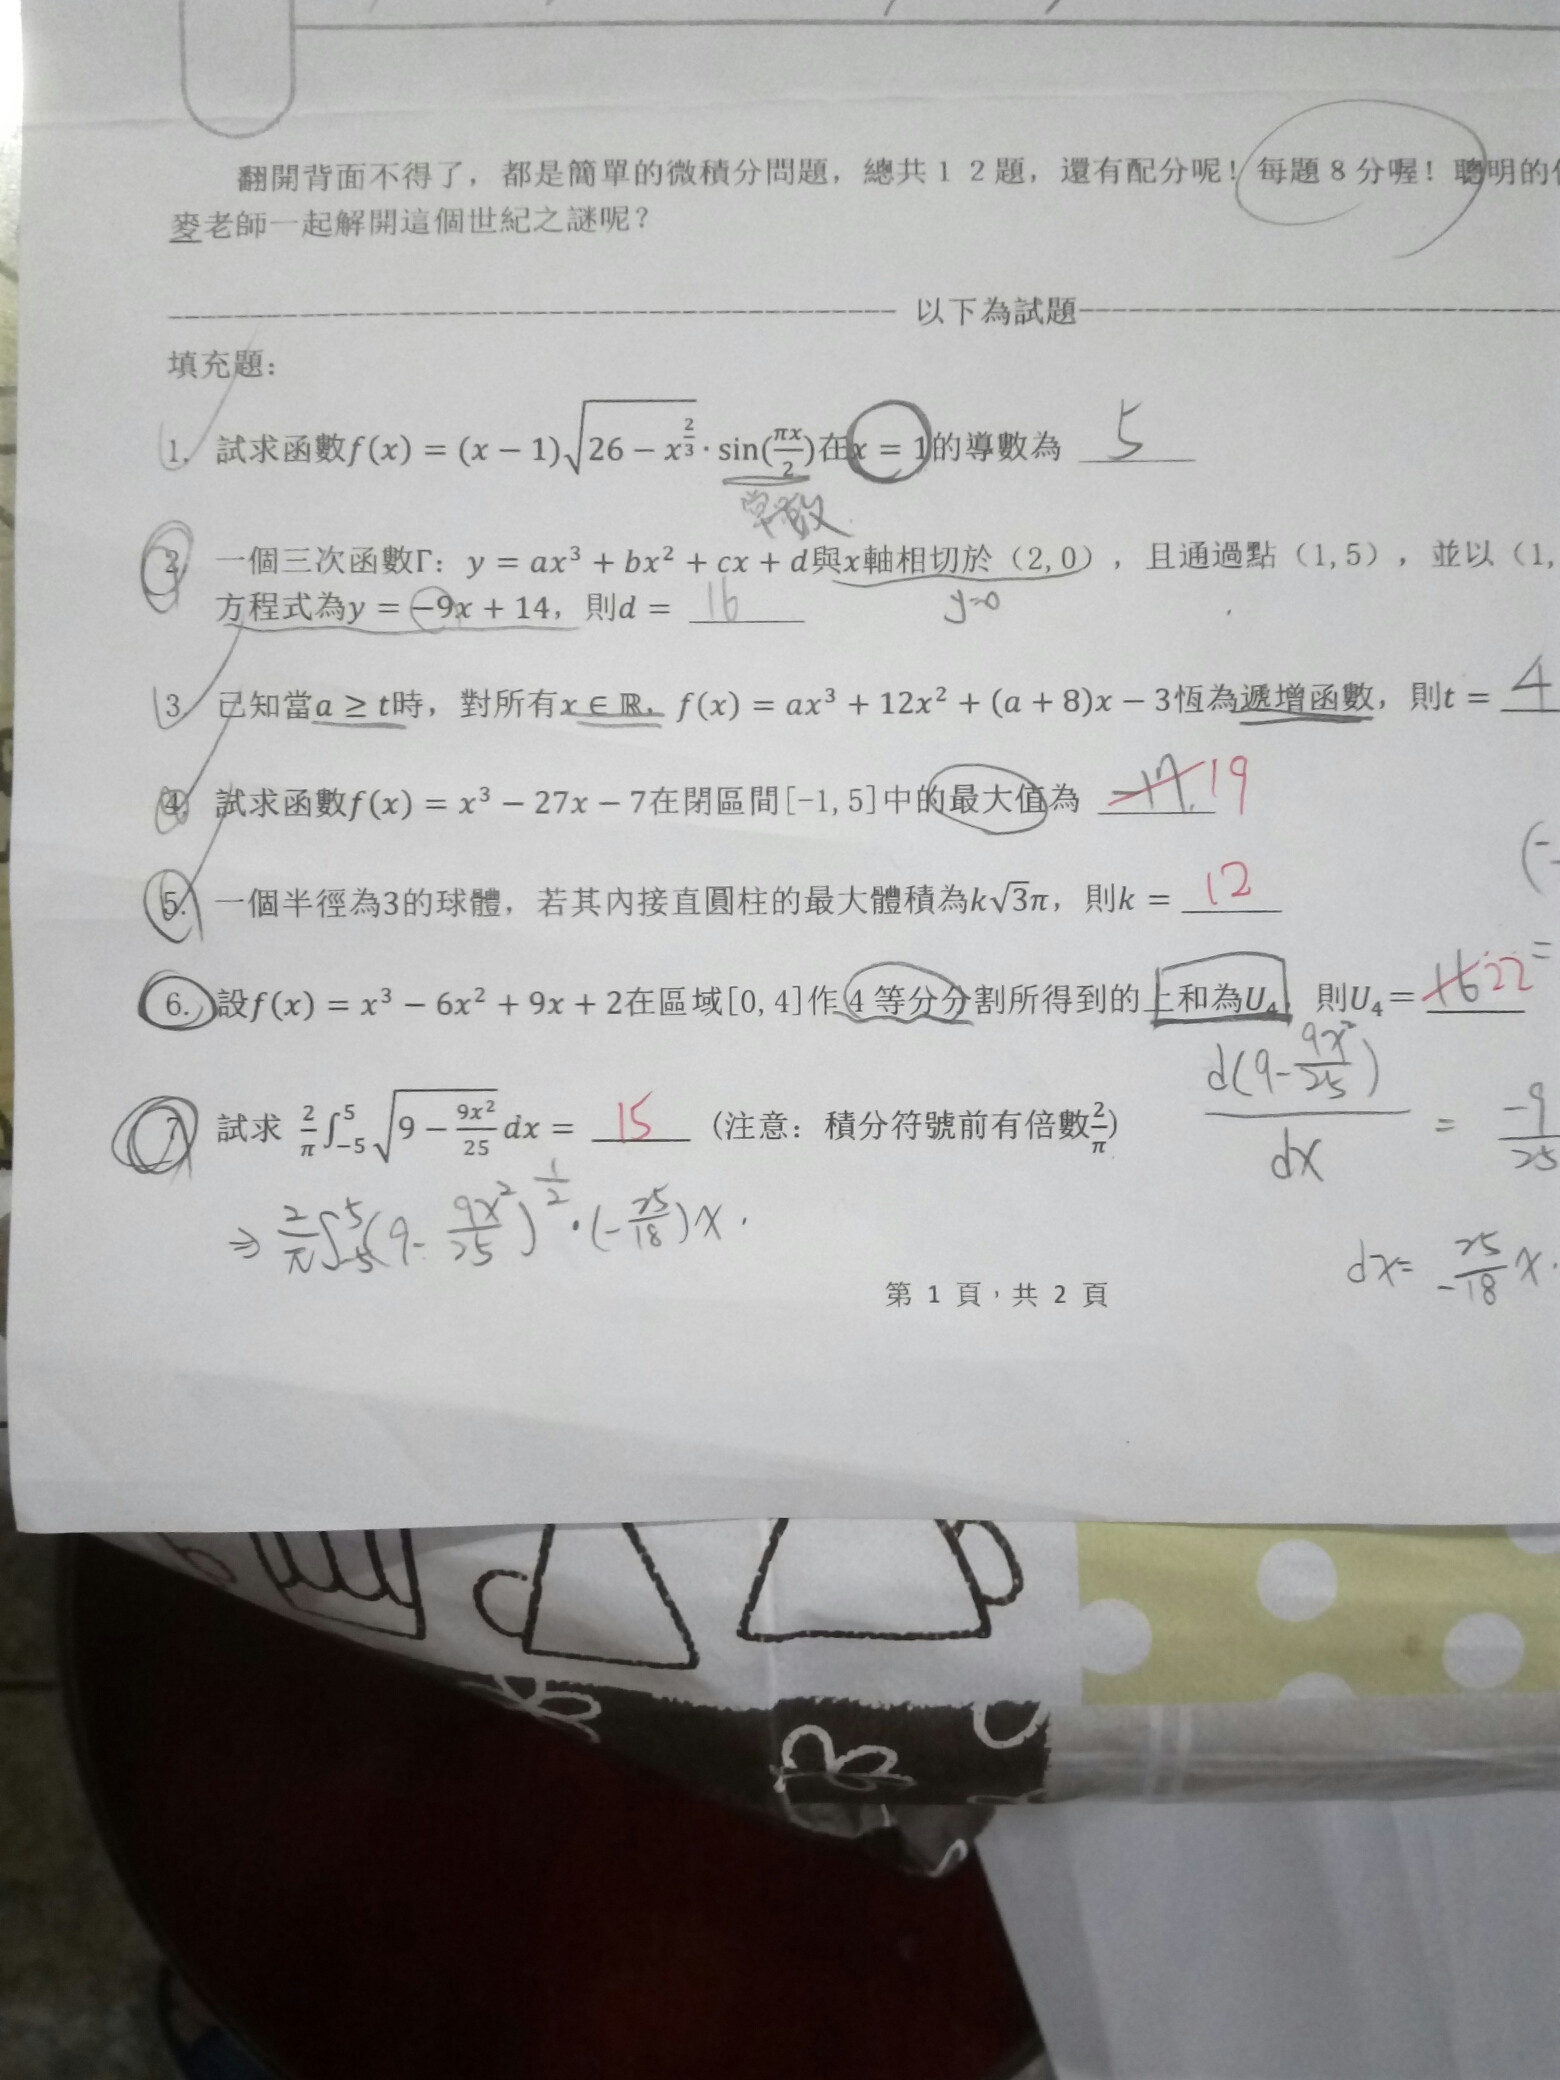 翻開背面不得了，都是簡單的微積分問題，總共１２題，還有配分呢！每題８分喔！聰明的
麥老師一起解開這個世紀之謎呢？
以下為試題
填充題：
1. 試求函數f(x) = (x − 1)√(26 − x^(2/3)) · sin(πx/2)在x = 1的導數為 5
常數
2. 一個三次函數Γ：y = ax³ + bx² + cx + d與x軸相切於（2,0），且通過點（1,5），並以（1,
方程式為y = −9x + 14，則d = 16
y=0
3. 已知當a ≥ t時，對所有x ∈ ℝ，f(x) = ax³ + 12x² + (a + 8)x − 3恆為遞增函數，則t = 4
4. 試求函數f(x) = x³ − 27x − 7在閉區間[-1,5]中的最大值為 19
5. 一個半徑為3的球體，若其內接直圓柱的最大體積為k√3π，則k = 12
6. 設f(x) = x³ − 6x² + 9x + 2在區域[0,4]作4等分分割所得到的上和為U₄，則U₄= 16 22
d(9-9x²/25)/dx = -9/25
7. 試求 2/π ∫₋₅⁵ √(9 − 9x²/25) dx = 15 （注意：積分符號前有倍數2/π）
⇒ 2/π ∫₋₅⁵ (9-9x²/25)^(1/2) · (-25/18)x .
dx= 25/-18 x.
第 1 頁，共 2 頁